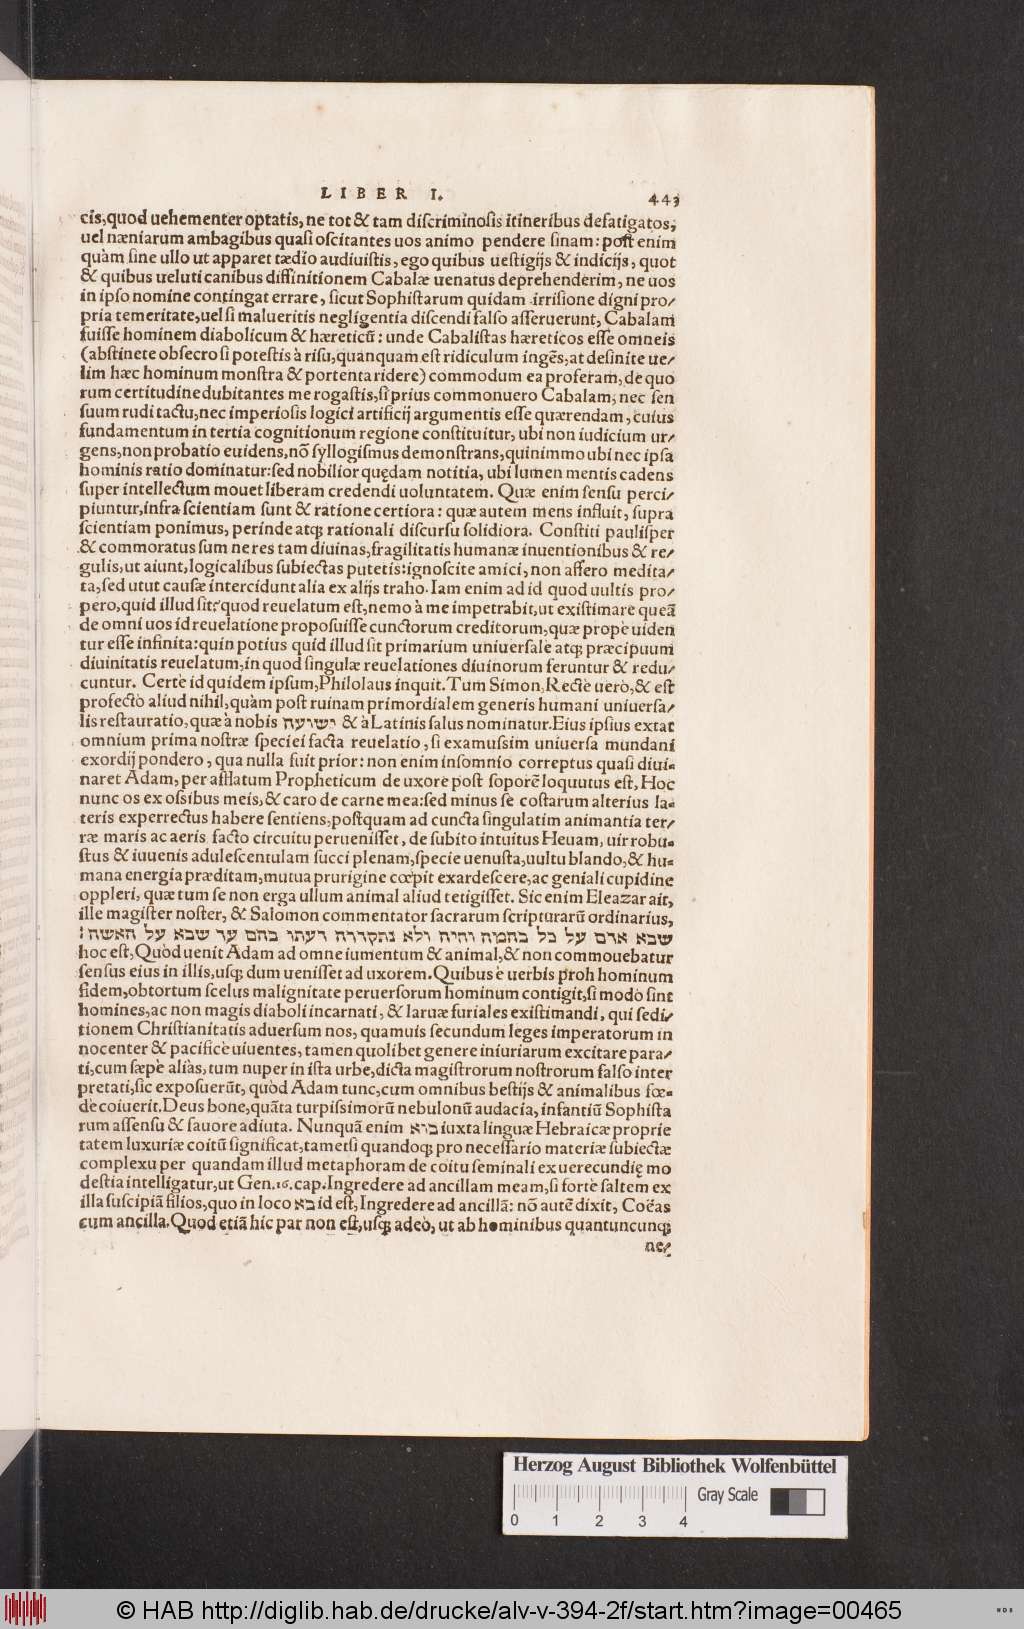 LIBER I. 443
cis,quod uehementer optatis, ne tot & tam discriminosis itineribus defatigatos,
uel næniarum ambagibus quasi oscitantes uos animo pendere sinam: post enim
quàm sine ullo ut apparet tædio audiuistis, ego quibus uestigijs & indicijs, quot
& quibus ueluti canibus diffinitionem Cabalæ uenatus deprehenderim, ne uos
in ipso nomine contingat errare, sicut Sophistarum quidam irrisione digni pro/
pria temeritate,uel si malueritis negligentia discendi falso asseruerunt, Cabalam
fuisse hominem diabolicum & hæreticũ: unde Cabalistas hæreticos esse omneis
(abstinete obsecro si potestis à risu,quanquam est ridiculum ingẽs,at desinite ue/
lim hæc hominum monstra & portenta ridere) commodum ea proferam, de quo
rum certitudine dubitantes me rogastis, si prius commonuero Cabalam, nec sen
suum rudi tactu,nec imperiosis logici artificij argumentis esse quærendam, cuius
fundamentum in tertia cognitionum regione constituitur, ubi non iudicium ur/
gens,non probatio euidens,nõ syllogismus demonstrans,quinimmo ubi nec ipsa
hominis ratio dominatur:sed nobilior quędam notitia, ubi lumen mentis cadens
super intellectum mouet liberam credendi uoluntatem. Quæ enim sensu perci/
piuntur,infra scientiam sunt & ratione certiora: quæ autem mens influit, supra
scientiam ponimus, perinde atq; rationali discursu solidiora. Constiti paulisper
& commoratus sum ne res tam diuinas,fragilitatis humanæ inuentionibus & re/
gulis,ut aiunt,logicalibus subiectas putetis:ignoscite amici, non affero medita/
ta,sed utut causæ intercidunt alia ex alijs traho. Iam enim ad id quod uultis pro/
pero,quid illud sit:quod reuelatum est,nemo à me impetrabit,ut existimare queã
de omni uos id reuelatione proposuisse cunctorum creditorum,quæ prope uiden
tur esse infinita:quin potius quid illud sit primarium uniuersale atq; præcipuum
diuinitatis reuelatum,in quod singulæ reuelationes diuinorum feruntur & redu/
cuntur. Certè id quidem ipsum,Philolaus inquit. Tum Simon, Rectè uerò,& est
profectò aliud nihil,quàm post ruinam primordialem generis humani uniuersa/
lis restauratio,quæ à nobis ישועה & à Latinis salus nominatur.Eius ipsius extat
omnium prima nostræ speciei facta reuelatio, si examussim uniuersa mundani
exordij pondero, qua nulla fuit prior: non enim insomnio correptus quasi diui=
naret Adam, per afflatum Propheticum de uxore post soporẽ loquutus est, Hoc
nunc os ex ossibus meis,& caro de carne mea:sed minus se costarum alterius la=
teris experrectus habere sentiens,postquam ad cuncta singulatim animantia ter/
ræ maris ac aeris facto circuitu peruenisset, de subito intuitus Heuam, uir robu=
stus & iuuenis adulescentulam succi plenam,specie uenusta,uultu blando,& hu=
mana energia præditam,mutua prurigine cœpit exardescere,ac geniali cupidine
oppleri, quæ tum se non erga ullum animal aliud tetigisset. Sic enim Eleazar ait,
ille magister noster, & Salomon commentator sacrarum scripturarũ ordinarius,
שבא אדם על כל בהמה וחיה ולא נתקררה דעתו בהם עד שבא על האשה:
hoc est, Quòd uenit Adam ad omne iumentum & animal,& non commouebatur
sensus eius in illis,usq; dum uenisset ad uxorem. Quibus è uerbis proh hominum
fidem,obtortum scelus malignitate peruersorum hominum contigit,si modò sint
homines,ac non magis diaboli incarnati, & laruæ furiales existimandi, qui sedi/
tionem Christianitatis aduersum nos, quamuis secundum leges imperatorum in
nocenter & pacificè uiuentes, tamen quolibet genere iniuriarum excitare para/
ti,cum sæpe aliàs,tum nuper in ista urbe,dicta magistrorum nostrorum falso inter
pretati,sic exposuerũt, quòd Adam tunc,cum omnibus bestijs & animalibus fœ=
dè coiuerit.Deus bone,quãta turpissimorũ nebulonũ audacia, infantiũ Sophista
rum assensu & fauore adiuta. Nunquã enim בוא iuxta linguæ Hebraicæ proprie
tatem luxuriæ coitũ significat,tametsi quandoq; pro necessario materiæ subiectæ
complexu per quandam illud metaphoram de coitu seminali ex uerecundię mo
destia intelligatur,ut Gen.16. cap.Ingredere ad ancillam meam,si fortè saltem ex
illa suscipiã filios,quo in loco בא id est,Ingredere ad ancillã: nõ autẽ dixit, Coẽas
cum ancilla.Quod etiã hic par non est,usq; adeò, ut ab hominibus quantuncunq;
ne/
Herzog August Bibliothek Wolfenbüttel
Gray Scale
0 1 2 3 4
© HAB http://diglib.hab.de/drucke/alv-v-394-2f/start.htm?image=00465